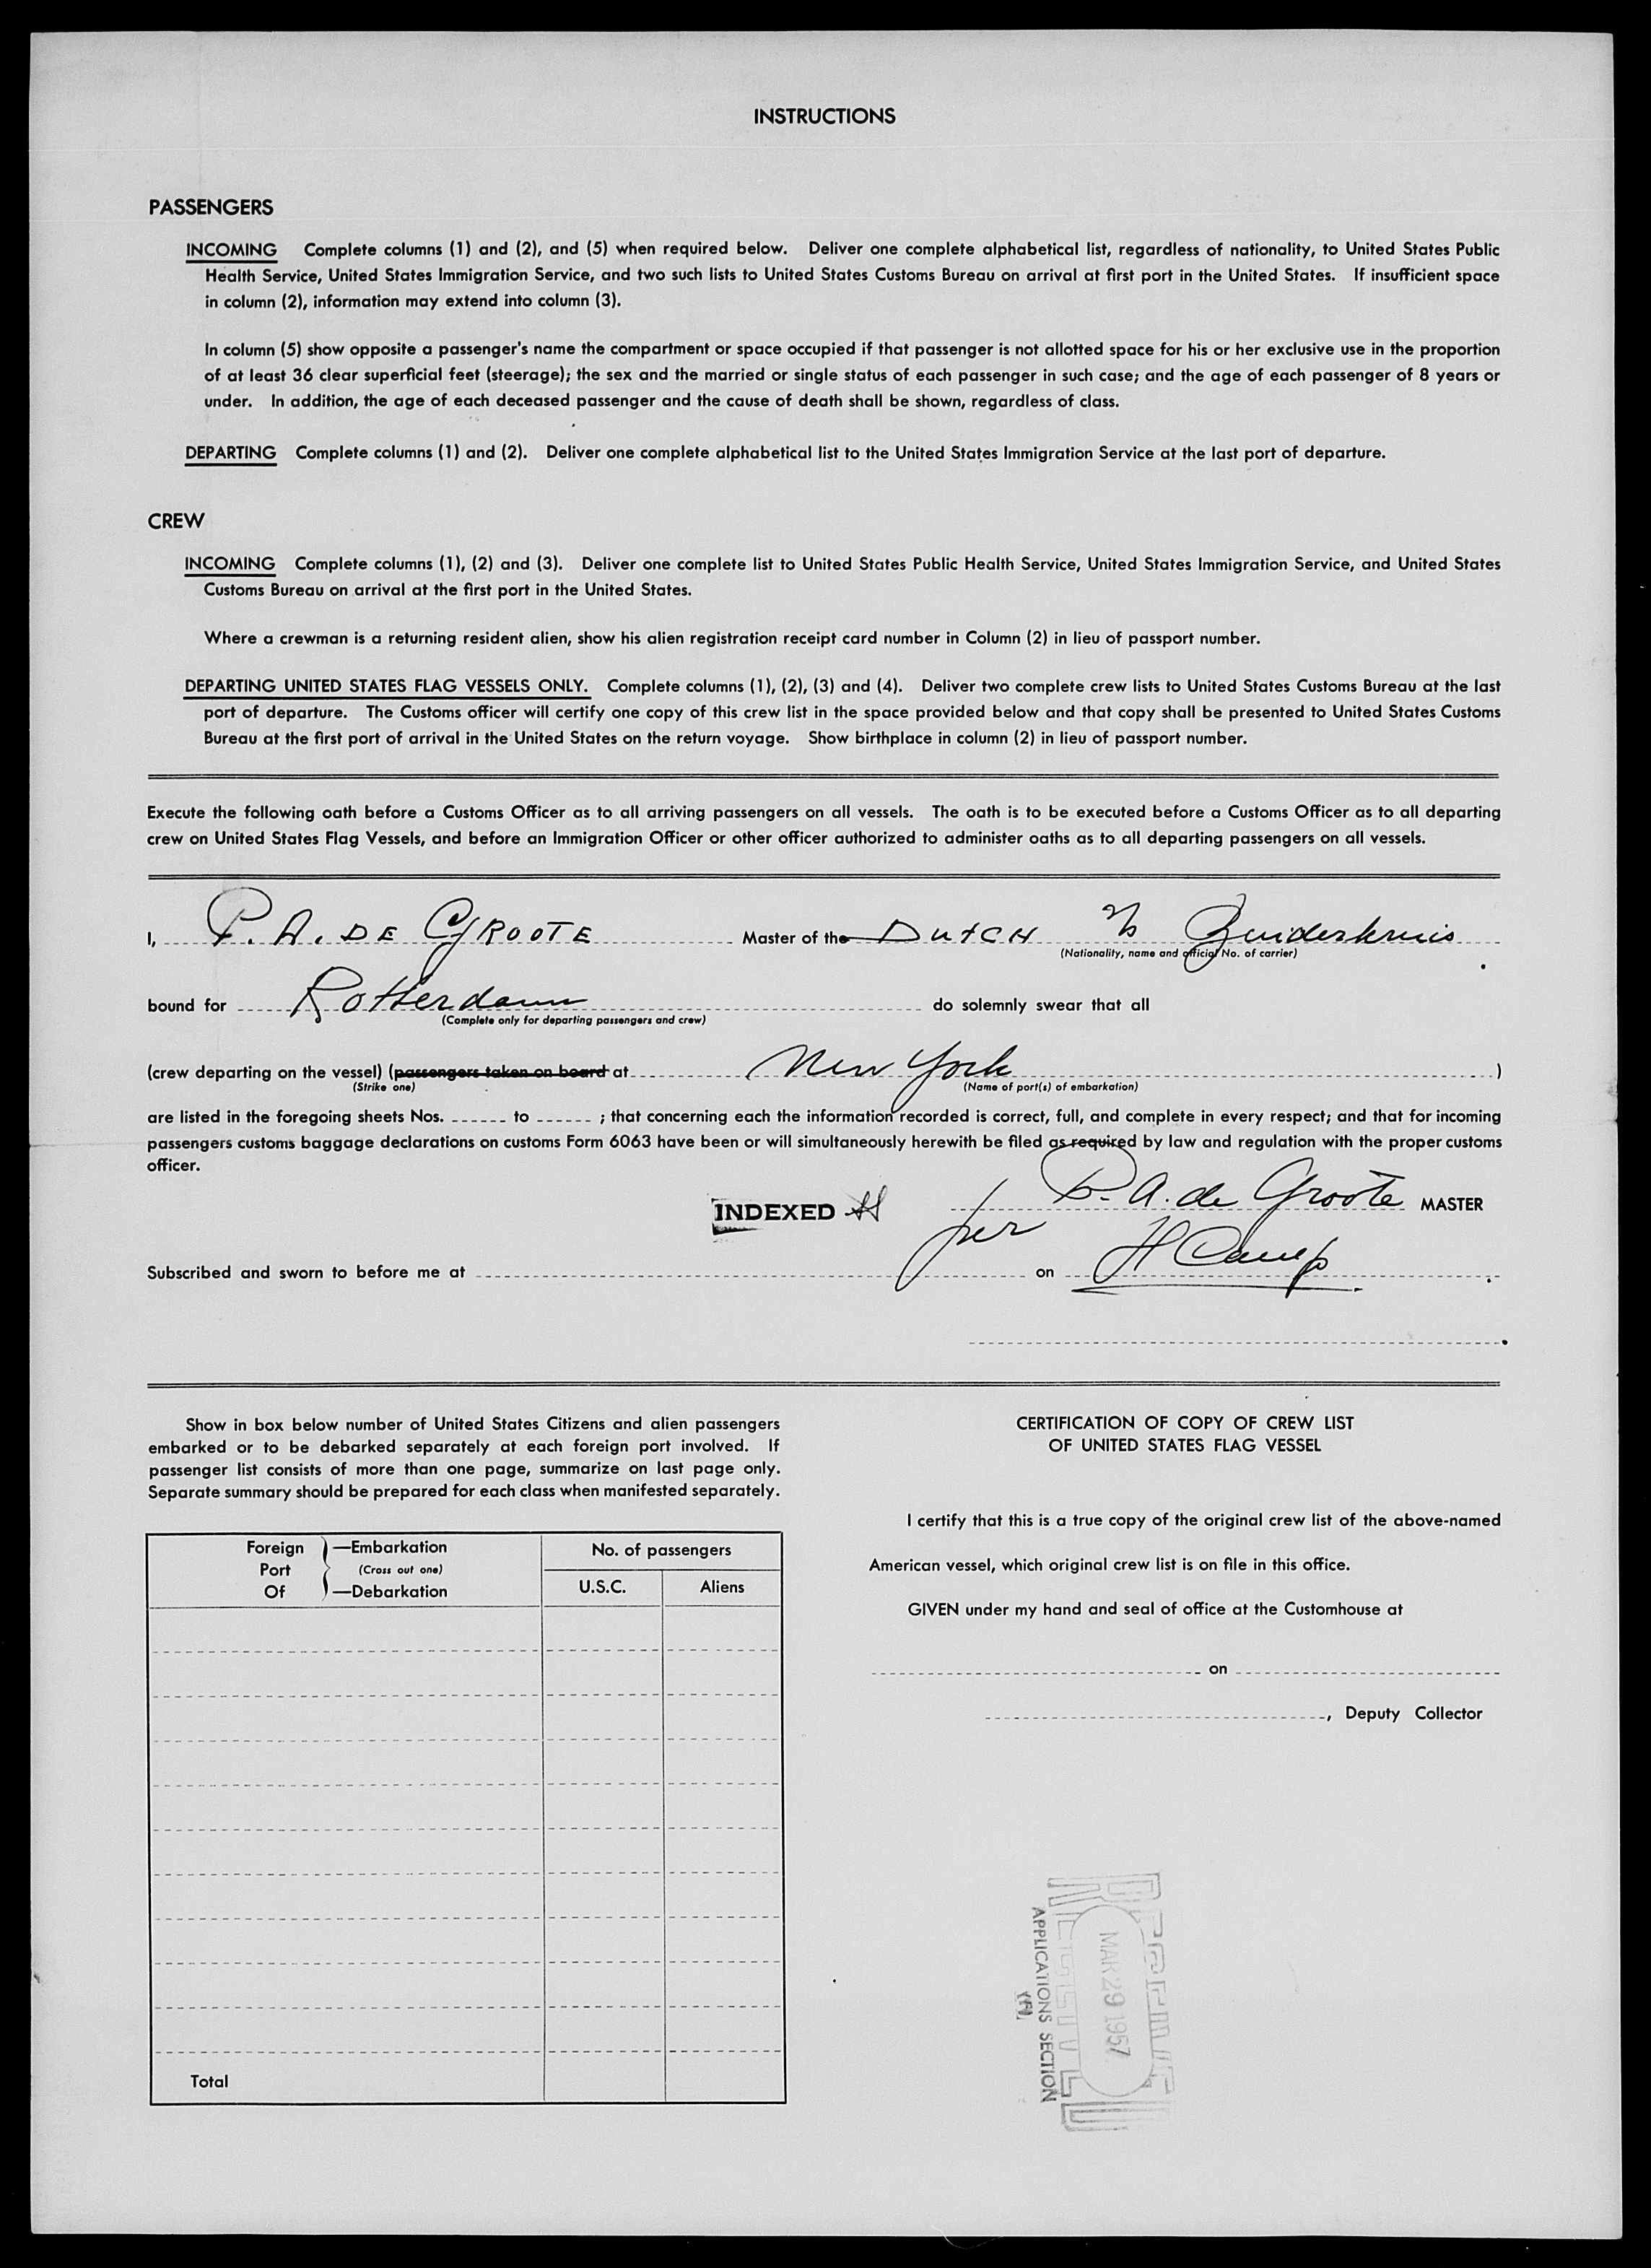 INSTRUCTIONS
PASSENGERS
INCOMING Complete columns (1) and (2), and (5) when required below. Deliver one complete alphabetical list, regardless of nationality, to United States Public
Health Service, United States Immigration Service, and two such lists to United States Customs Bureau on arrival at first port in the United States. If insufficient space
in column (2), information may extend into column (3).
In column (5) show opposite a passenger's name the compartment or space occupied if that passenger is not allotted space for his or her exclusive use in the proportion
of at least 36 clear superficial feet (steerage); the sex and the married or single status of each passenger in such case; and the age of each passenger of 8 years or
under. In addition, the age of each deceased passenger and the cause of death shall be shown, regardless of class.
DEPARTING Complete columns (1) and (2). Deliver one complete alphabetical list to the United States Immigration Service at the last port of departure.
CREW
INCOMING Complete columns (1), (2) and (3). Deliver one complete list to United States Public Health Service, United States Immigration Service, and United States
Customs Bureau on arrival at the first port in the United States.
Where a crewman is a returning resident alien, show his alien registration receipt card number in Column (2) in lieu of passport number.
DEPARTING UNITED STATES FLAG VESSELS ONLY. Complete columns (1), (2), (3) and (4). Deliver two complete crew lists to United States Customs Bureau at the last
port of departure. The Customs officer will certify one copy of this crew list in the space provided below and that copy shall be presented to United States Customs
Bureau at the first port of arrival in the United States on the return voyage. Show birthplace in column (2) in lieu of passport number.
Execute the following oath before a Customs Officer as to all arriving passengers on all vessels. The oath is to be executed before a Customs Officer as to all departing
crew on United States Flag Vessels, and before an Immigration Officer or other officer authorized to administer oaths as to all departing passengers on all vessels.
I, P. A. DE GROOTE Master of the DUTCH Zuiderkruis
(Nationality, name and official No. of carrier)
bound for Rotterdam do solemnly swear that all
(Complete only for departing passengers and crew)
(crew departing on the vessel) (passengers taken on board at New York )
(Strike one) (Name of port(s) of embarkation)
are listed in the foregoing sheets Nos. to ; that concerning each the information recorded is correct, full, and complete in every respect; and that for incoming
passengers customs baggage declarations on customs Form 6063 have been or will simultaneously herewith be filed as required by law and regulation with the proper customs
officer.
INDEXED P. A. de Groote MASTER
per H Camp
Subscribed and sworn to before me at on
Show in box below number of United States Citizens and alien passengers
embarked or to be debarked separately at each foreign port involved. If
passenger list consists of more than one page, summarize on last page only.
Separate summary should be prepared for each class when manifested separately.
Foreign Port Of —Embarkation (Cross out one) —Debarkation
No. of passengers
U.S.C. Aliens
Total
CERTIFICATION OF COPY OF CREW LIST
OF UNITED STATES FLAG VESSEL
I certify that this is a true copy of the original crew list of the above-named
American vessel, which original crew list is on file in this office.
GIVEN under my hand and seal of office at the Customhouse at
on
, Deputy Collector
MAR 29 1957
APPLICATIONS SECTION